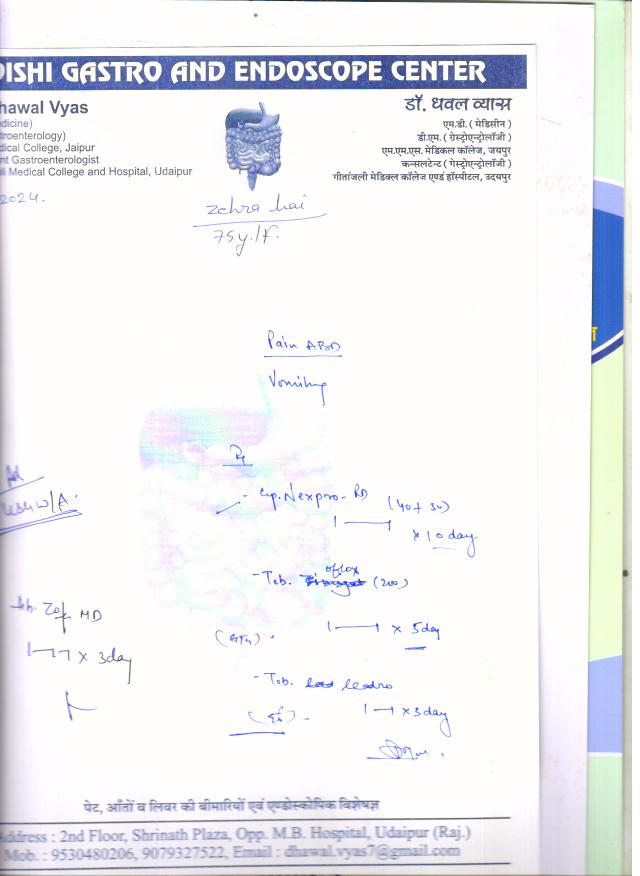 DISHI GASTRO AND ENDOSCOPE CENTER
hawal Vyas
dicine)
troenterology)
dical College, Jaipur
nt Gastroenterologist
li Medical College and Hospital, Udaipur
डॉ. धवल व्यास
एम.डी. ( मेडिसीन )
डी.एम. ( ग्रेस्ट्रोएन्ट्रोलॉजी )
एम.एम.एस. मेडिकल कॉलेज, जयपुर
कन्सलटेन्ट ( गेस्ट्रोएन्ट्रोलॉजी )
गीतांजली मेडिकल कॉलेज एण्ड हॉस्पीटल, उदयपुर
2024.
Zehra bai
75y./F.
Pain ABD
Vomiting
Rx
- Cap. Nexpro-RD (40+30)
1 × 10 day
USG W/A.
- Tab. oflox (200)
1 × 5 day
Tab. Zof MD
1-1-1 × 3day
- Tab. ledro
1 × 3day
पेट, आँतों व लिवर की बीमारियों एवं एण्डोस्कोपिक विशेषज्ञ
ddress : 2nd Floor, Shrinath Plaza, Opp. M.B. Hospital, Udaipur (Raj.)
Mob. : 9530480206, 9079327522, Email : dhawal.vyas7@gmail.com